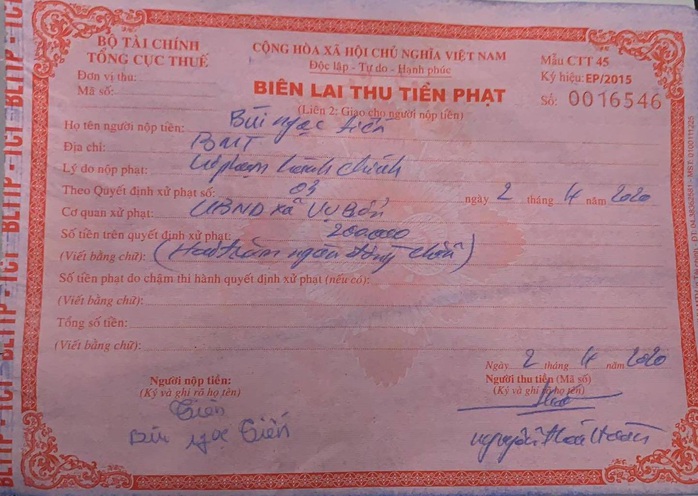 BỘ TÀI CHÍNH
TỔNG CỤC THUẾ
Đơn vị thu:
Mã số:
CỘNG HÒA XÃ HỘI CHỦ NGHĨA VIỆT NAM
Độc lập - Tự do - Hạnh phúc
BIÊN LAI THU TIỀN PHẠT
(Liên 2: Giao cho người nộp tiền)
Mẫu CTT 45
Ký hiệu: EP/2015
Số: 0016546
Họ tên người nộp tiền: Bùi Ngọc Tiến
Địa chỉ: BMT
Lý do nộp phạt: Vi phạm hành chính
Theo Quyết định xử phạt số: 03 ngày 2 tháng 4 năm 2020
Cơ quan xử phạt: UBND xã Vụ Bổn
Số tiền trên quyết định xử phạt: 200000
(Viết bằng chữ): (Hai trăm ngàn đồng chẵn)
Số tiền phạt do chậm thi hành quyết định xử phạt (nếu có):
(Viết bằng chữ):
Tổng số tiền:
(Viết bằng chữ):
Ngày 2 tháng 4 năm 2020
Người nộp tiền:
(Ký và ghi rõ họ tên)
Tiến
Bùi Ngọc Tiến
Người thu tiền (Mã số)
(Ký và ghi rõ họ tên)
BLTTP - TCT - BLTTP - TCT - BLTTP - TCT